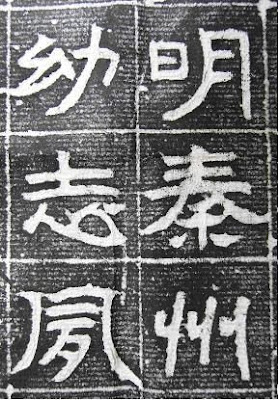 明秦州
幼志夙